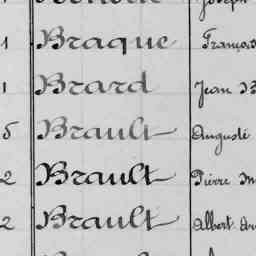 1 Braque François
1 Brard Jean B
5 Brault Auguste
2 Brault Pierre M
2 Brault Albert